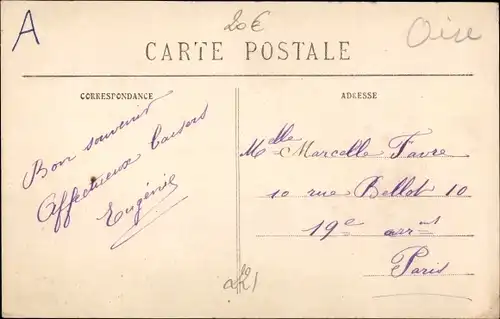 A
20€
Oise
CARTE POSTALE
CORRESPONDANCE
Bon souvenir
Affectueux baisers
Eugénie
ADRESSE
Melle Marcelle Favre
10 rue Bellot 10
19e arrnt
Paris